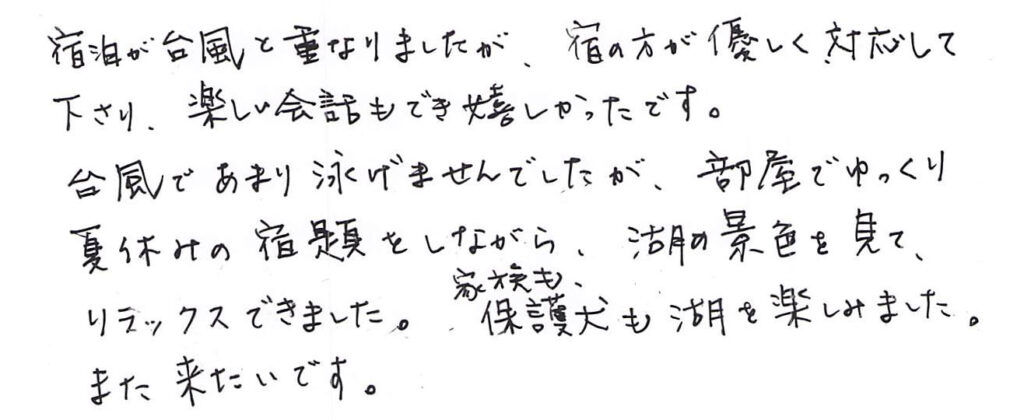 宿泊が台風と重なりましたが、宿の方が優しく対応して
下さり、楽しい会話もでき嬉しかったです。
台風であまり泳げませんでしたが、部屋でゆっくり
夏休みの宿題をしながら、湖の景色を見て、
リラックスできました。家族も、保護犬も湖を楽しみました。
また来たいです。